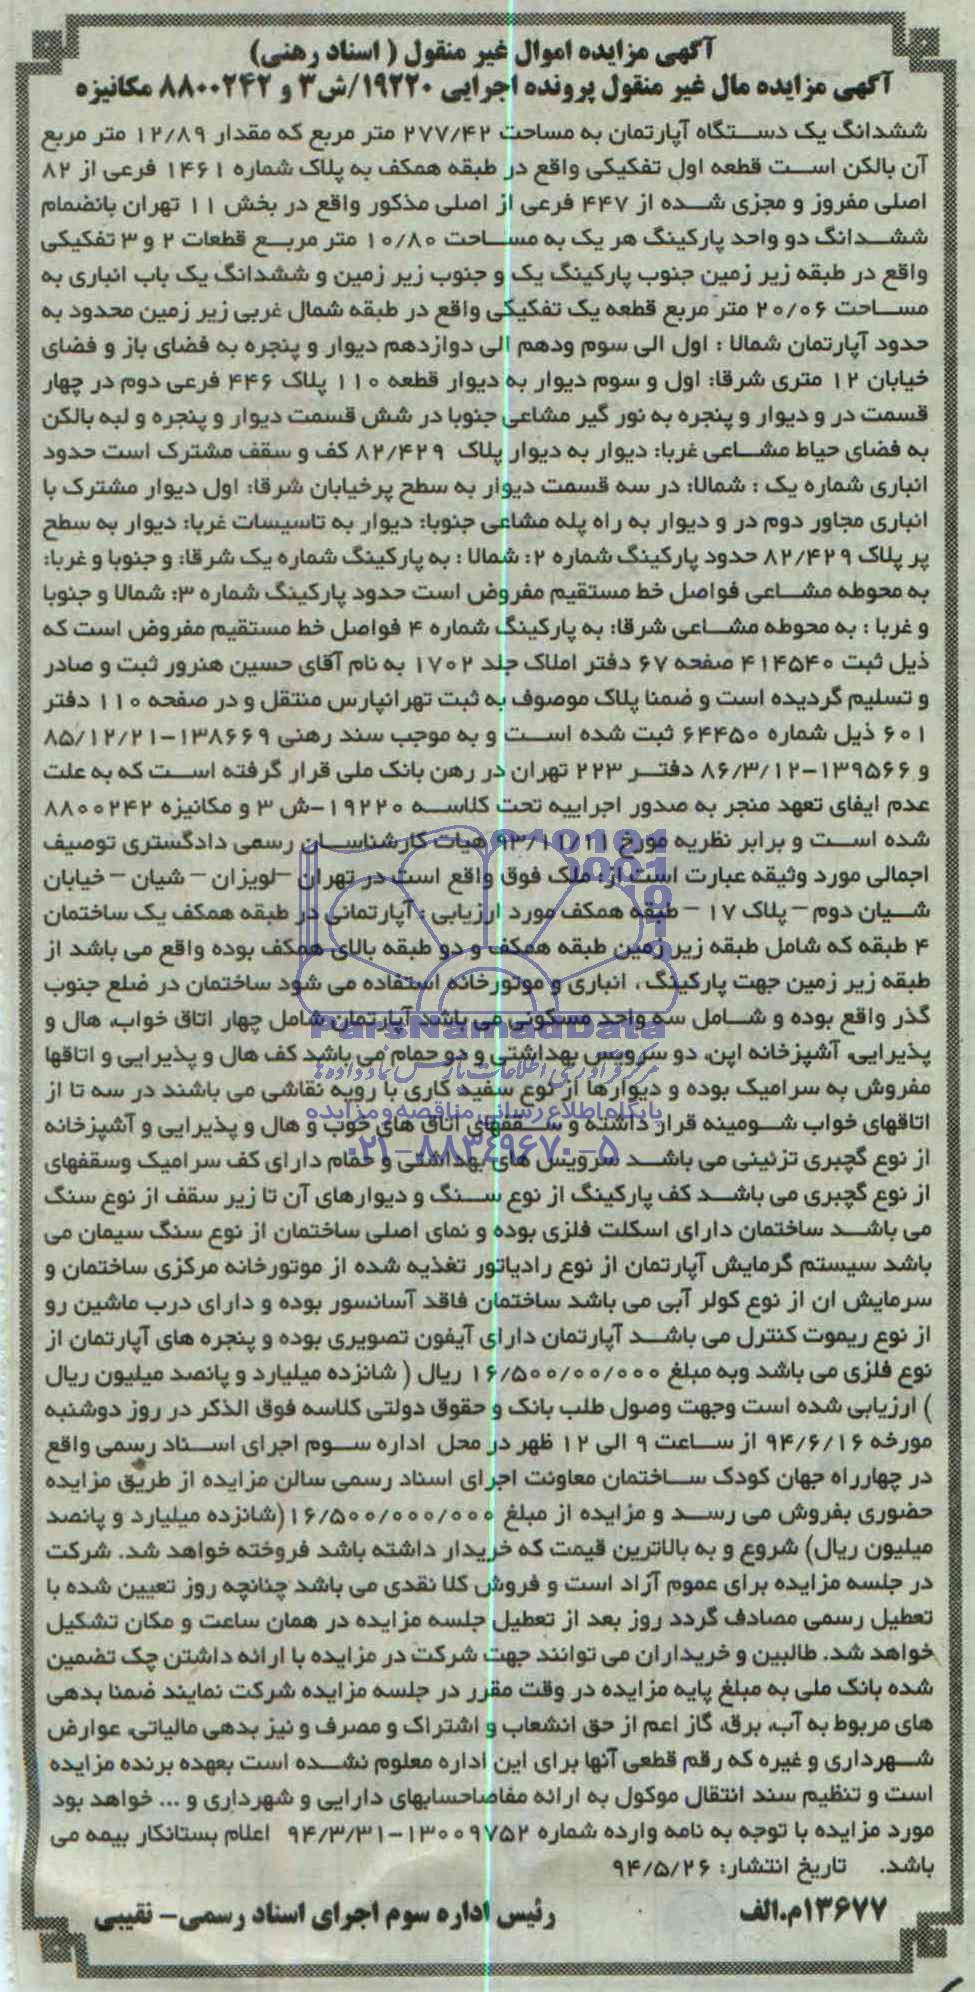 آگهی مزایده اموال غیر منقول ( اسناد رهنی)
آگهی مزایده مال غیر منقول پرونده اجرایی ۱۹۲۲۰/ش۳ و ۸۸۰۰۲۴۲ مکانیزه
ششدانگ یک دستگاه آپارتمان به مساحت ۲۷۷/۴۲ متر مربع که مقدار ۱۲/۸۹ متر مربع
آن بالکن است قطعه اول تفکیکی واقع در طبقه همکف به پلاک شماره ۱۴۶۱ فرعی از ۸۲
اصلی مفروز و مجزی شده از ۴۴۷ فرعی از اصلی مذکور واقع در بخش ۱۱ تهران بانضمام
ششدانگ دو واحد پارکینگ هر یک به مساحت ۱۰/۸۰ متر مربع قطعات ۲ و ۳ تفکیکی
واقع در طبقه زیر زمین جنوب پارکینگ یک و جنوب زیر زمین و ششدانگ یک باب انباری به
مساحت ۲۰/۰۶ متر مربع قطعه یک تفکیکی واقع در طبقه شمال غربی زیر زمین محدود به
حدود آپارتمان شمالا : اول الی سوم ودهم الی دوازدهم دیوار و پنجره به فضای باز و فضای
خیابان ۱۲ متری شرقا: اول و سوم دیوار به دیوار قطعه ۱۱۰ پلاک ۴۴۶ فرعی دوم در چهار
قسمت در و دیوار و پنجره به نور گیر مشاعی جنوبا در شش قسمت دیوار و پنجره و لبه بالکن
به فضای حیاط مشاعی غربا: دیوار به دیوار پلاک ۸۲/۴۲۹ کف و سقف مشترک است حدود
انباری شماره یک : شمالا: در سه قسمت دیوار به سطح پرخیابان شرقا: اول دیوار مشترک با
انباری مجاور دوم در و دیوار به راه پله مشاعی جنوبا: دیوار به تاسیسات غربا: دیوار به سطح
پر پلاک ۸۲/۴۲۹ حدود پارکینگ شماره ۲: شمالا : به پارکینگ شماره یک شرقا: و جنوبا و غربا:
به محوطه مشاعی فواصل خط مستقیم مفروض است حدود پارکینگ شماره ۳: شمالا و جنوبا
و غربا : به محوطه مشاعی شرقا: به پارکینگ شماره ۴ فواصل خط مستقیم مفروض است که
ذیل ثبت ۴۱۴۵۴۰ صفحه ۶۷ دفتر املاک جلد ۱۷۰۲ به نام آقای حسین هنرور ثبت و صادر
و تسلیم گردیده است و ضمنا پلاک موصوف به ثبت تهرانپارس منتقل و در صفحه ۱۱۰ دفتر
۶۰۱ ذیل شماره ۶۴۴۵۰ ثبت شده است و به موجب سند رهنی ۱۳۸۶۶۹-۸۵/۱۲/۲۱
و ۱۳۹۵۶۶-۸۶/۳/۱۲ دفتر ۲۲۳ تهران در رهن بانک ملی قرار گرفته است که به علت
عدم ایفای تعهد منجر به صدور اجراییه تحت کلاسه ۱۹۲۲۰-ش ۳ و مکانیزه ۸۸۰۰۲۴۲
شده است و برابر نظریه مورخ ۹۳/۱۱/۱۱ هیات کارشناسان رسمی دادگستری توصیف
اجمالی مورد وثیقه عبارت است از: ملک فوق واقع است در تهران –لویزان – شیان – خیابان
شیان دوم – پلاک ۱۷ – طبقه همکف مورد ارزیابی : آپارتمانی در طبقه همکف یک ساختمان
۴ طبقه که شامل طبقه زیر زمین طبقه همکف و دو طبقه بالای همکف بوده واقع می باشد از
طبقه زیر زمین جهت پارکینگ ، انباری و موتورخانه استفاده می شود ساختمان در ضلع جنوب
گذر واقع بوده و شامل سه واحد مسکونی می باشد آپارتمان شامل چهار اتاق خواب، هال و
پذیرایی، آشپزخانه اپن، دو سرویس بهداشتی و دو حمام می باشد کف هال و پذیرایی و اتاقها
مفروش به سرامیک بوده و دیوارها از نوع سفید کاری با رویه نقاشی می باشند در سه تا از
اتاقهای خواب شومینه قرار داشته و سقفهای اتاق های خوب و هال و پذیرایی و آشپزخانه
از نوع گچبری تزئینی می باشد سرویس های بهداشتی و حمام دارای کف سرامیک وسقفهای
از نوع گچبری می باشد کف پارکینگ از نوع سنگ و دیوارهای آن تا زیر سقف از نوع سنگ
می باشد ساختمان دارای اسکلت فلزی بوده و نمای اصلی ساختمان از نوع سنگ سیمان می
باشد سیستم گرمایش آپارتمان از نوع رادیاتور تغذیه شده از موتورخانه مرکزی ساختمان و
سرمایش ان از نوع کولر آبی می باشد ساختمان فاقد آسانسور بوده و دارای درب ماشین رو
از نوع ریموت کنترل می باشد آپارتمان دارای آیفون تصویری بوده و پنجره های آپارتمان از
نوع فلزی می باشد وبه مبلغ ۱۶/۵۰۰/۰۰/۰۰۰ ریال ( شانزده میلیارد و پانصد میلیون ریال
) ارزیابی شده است وجهت وصول طلب بانک و حقوق دولتی کلاسه فوق الذکر در روز دوشنبه
مورخه ۹۴/۶/۱۶ از ساعت ۹ الی ۱۲ ظهر در محل اداره سوم اجرای اسناد رسمی واقع
در چهارراه جهان کودک ساختمان معاونت اجرای اسناد رسمی سالن مزایده از طریق مزایده
حضوری بفروش می رسد و مزایده از مبلغ ۱۶/۵۰۰/۰۰۰/۰۰۰(شانزده میلیارد و پانصد
میلیون ریال) شروع و به بالاترین قیمت که خریدار داشته باشد فروخته خواهد شد. شرکت
در جلسه مزایده برای عموم آزاد است و فروش کلا نقدی می باشد چنانچه روز تعیین شده با
تعطیل رسمی مصادف گردد روز بعد از تعطیل جلسه مزایده در همان ساعت و مکان تشکیل
خواهد شد. طالبین و خریداران می توانند جهت شرکت در مزایده با ارائه داشتن چک تضمین
شده بانک ملی به مبلغ پایه مزایده در وقت مقرر در جلسه مزایده شرکت نمایند ضمنا بدهی
های مربوط به آب، برق، گاز اعم از حق انشعاب و اشتراک و مصرف و نیز بدهی مالیاتی، عوارض
شهرداری و غیره که رقم قطعی آنها برای این اداره معلوم نشده است بعهده برنده مزایده
است و تنظیم سند انتقال موکول به ارائه مفاصاحسابهای دارایی و شهرداری و ... خواهد بود
مورد مزایده با توجه به نامه وارده شماره ۱۳۰۰۹۷۵۲-۹۴/۳/۳۱ اعلام بستانکار بیمه می
باشد. تاریخ انتشار: ۹۴/۵/۲۶
۱۳۶۷۷م.الف رئیس اداره سوم اجرای اسناد رسمی– نقیبی
ParsNamadData
مرکز فرآوری اطلاعات پارس نماد داده ها
پایگاه اطلاع رسانی مناقصه و مزایده
۰۲۱-۸۸۳۴۹۶۷۰-۵